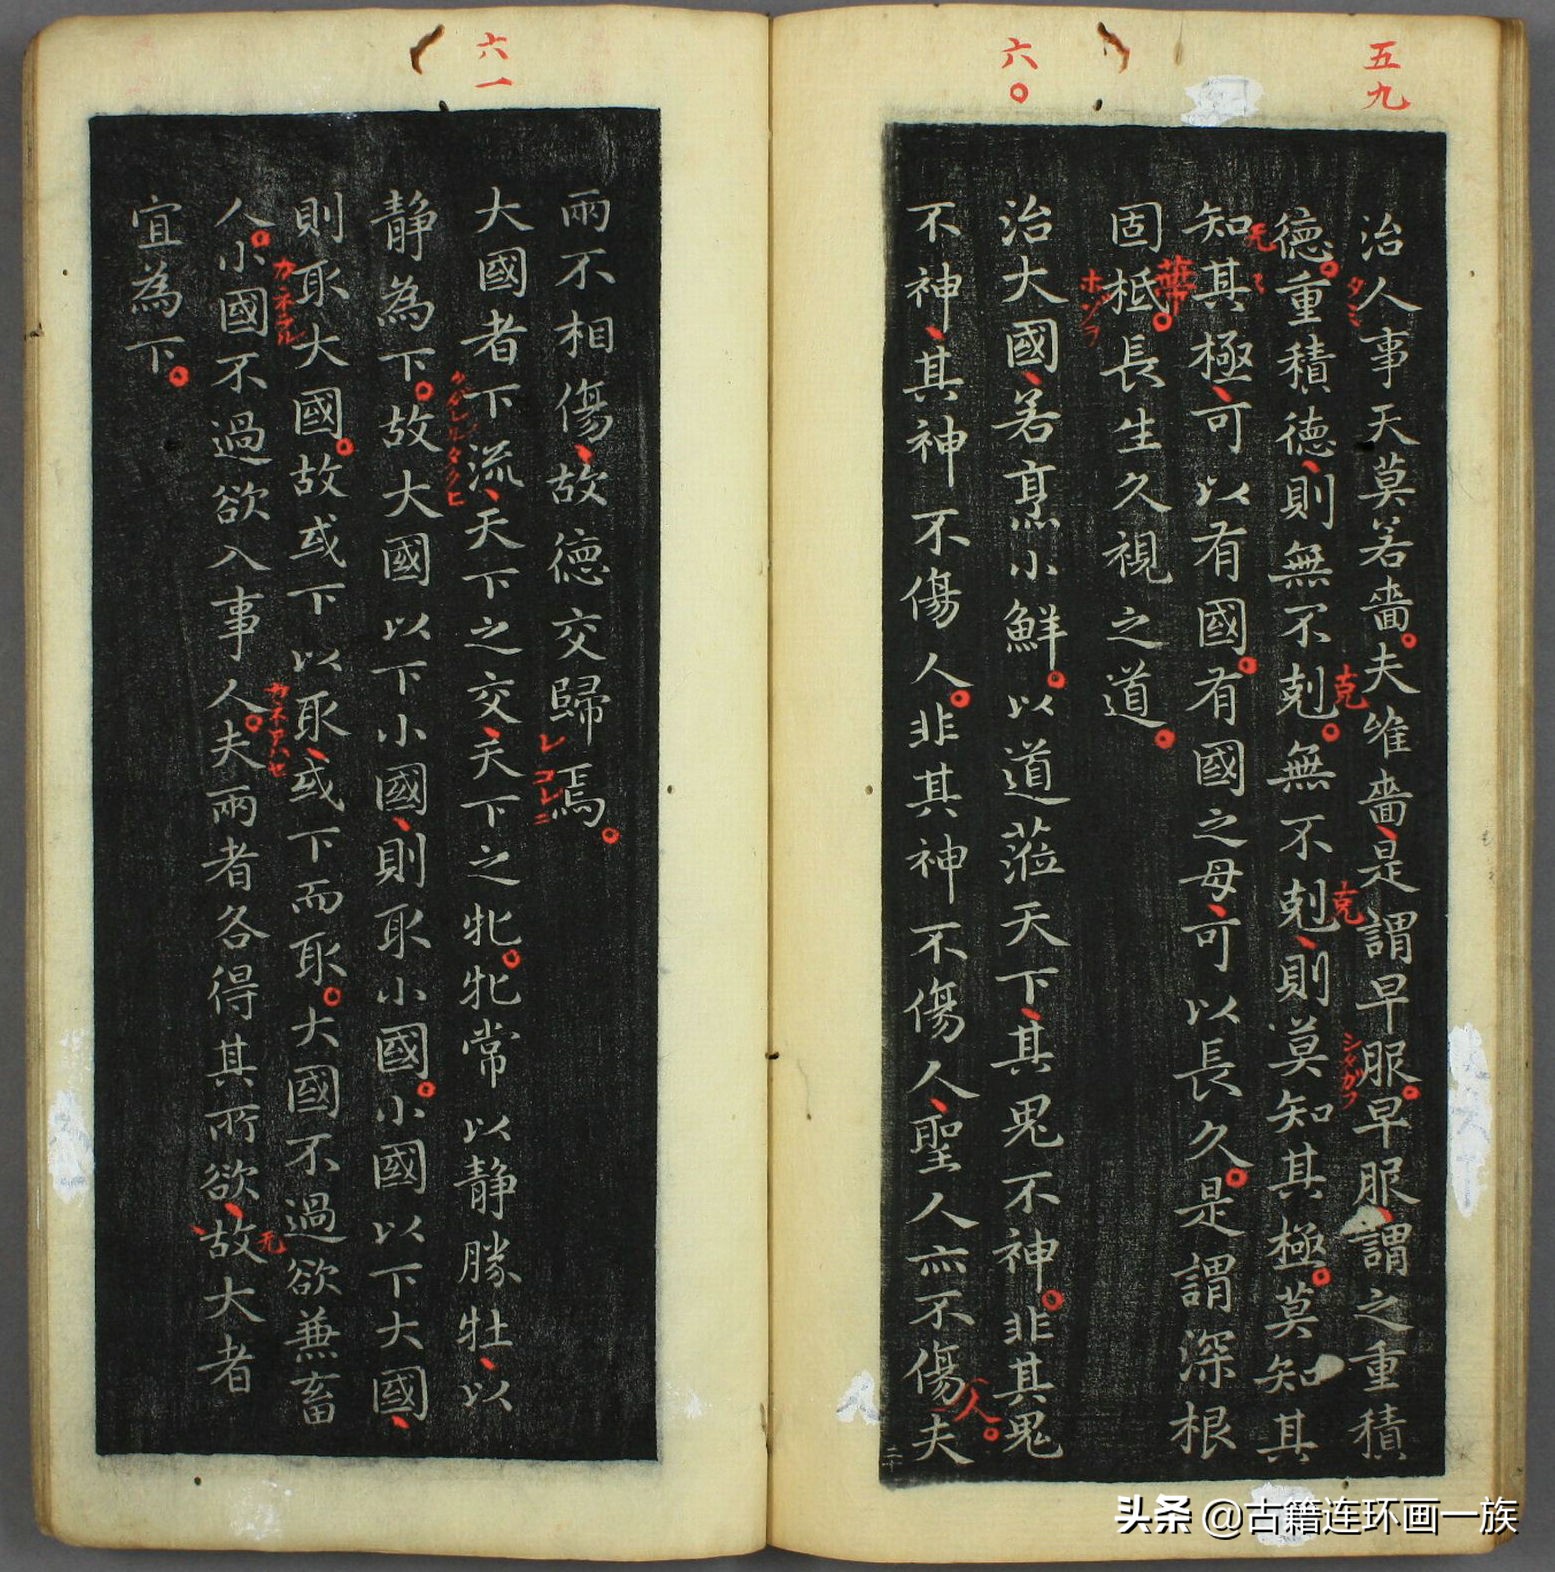 五九
治人事天莫若嗇夫唯嗇是謂早服早服謂之重積
克
克
シタガフ
德重積德則無不剋無不剋則莫知其極莫知其
无
知其極可以有國有國之母可以長久是謂深根
華
固柢長生久視之道
六〇
治大國若烹小鮮以道蒞天下其鬼不神非其鬼
人
不神其神不傷人非其神不傷人聖人亦不傷夫
二十
兩不相傷故德交歸焉
六一
大國者下流天下之交天下之牝牝常以静勝牡以
静為下故大國以下小國則取小國小國以下大國
則取大國故或下以取或下而取大國不過欲兼畜
无
人小國不過欲入事人夫兩者各得其所欲故大者
宜為下
头条 @古籍连环画一族